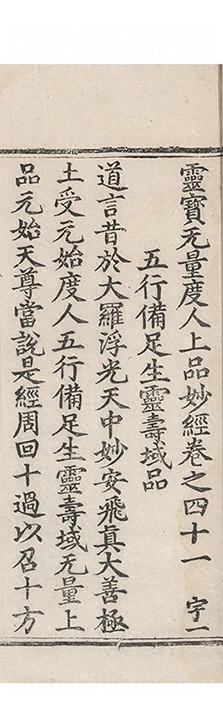 靈寶无量度人上品妙經卷之四十一 宇一
五行備足生靈壽域品
道言昔於大羅浮光天中妙安飛真大善極
土受元始度人五行備足生靈壽域无量上
品元始天尊當說是經周回十過以召十方